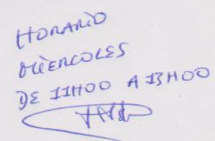 HORARIO
MIERCOLES
DE 11H00 A 13H00